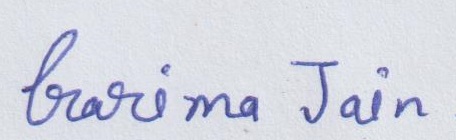 Garima Jain